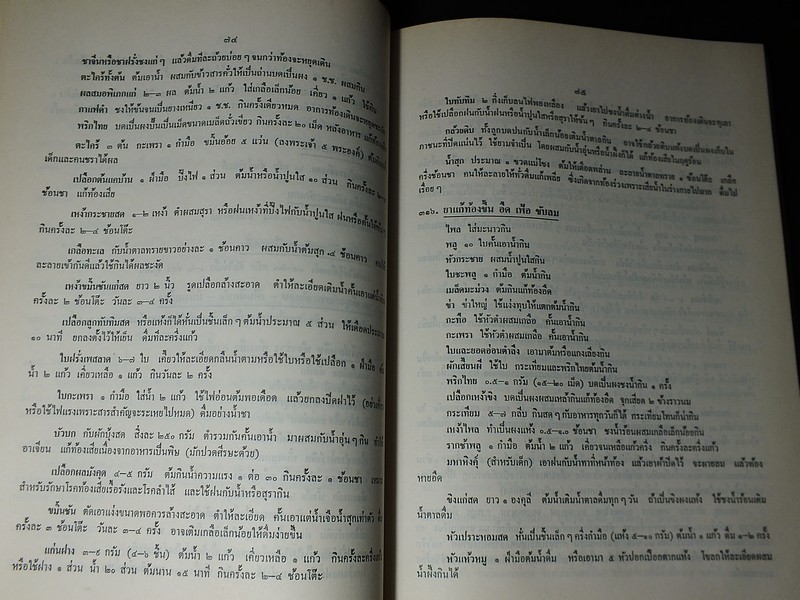 ๗๔
ชาจีนหรือชาฝรั่งชงแก่ ๆ แล้วดื่มทีละถ้วยบ่อย ๆ จนกว่าท้องจะหยุดเดิน
ตะไคร้ทั้งต้น ต้มเอาน้ำ ผสมกับข้าวสารคั่วให้เป็นถ่านบดเป็นผง ๑ ช.ช. ผสมกิน
ผลสมอพิเภกแก่ ๒-๓ ผล ต้มน้ำ ๒ แก้ว ใส่เกลือเล็กน้อย เคี่ยว ๑ แก้ว ใช้กิน
กาแฟดำ ชงให้ข้นจนเป็นยางเหนียว ๑ ช.ช. กินครั้งเดียวหมด อาการท้องเดินจะหยุด
พริกไทย บดเป็นผงปั้นเป็นเม็ดขนาดเมล็ดถั่วเขียว กินครั้งละ ๒๐ เม็ด หลังอาหาร
ตะไคร้ ๓ ต้น กะเพรา ๑ กำมือ ขมิ้นอ้อย ๕ แว่น (ลงพระเจ้า ๕ พระองค์) ต้ม
เด็กและคนชราได้ผล
เปลือกต้นแคบ้าน ๑ ฝ่ามือ ปิ้งไฟ ๑ ส่วน ต้มน้ำหรือน้ำปูนใส ๑๐ ส่วน กินครั้งละ
ช้อนชา แก้ท้องเสีย
เหง้ากระชายสด ๑-๒ เหง้า ตำผสมสุรา หรือฝนเหง้าที่ปิ้งไฟกับน้ำปูนใส ฝนหรือคั้นให้ข้น
กินครั้งละ ๒-๔ ช้อนโต๊ะ
เกลือทะเล กับน้ำตาลทรายขาวอย่างละ ๑ ช้อนคาว ผสมกับน้ำต้มสุก ๔ ช้อนคาว
ละลายเข้ากันดีแล้วใช้กินได้ผลชะงัด
เหง้าขมิ้นชันแก่สด ยาว ๒ นิ้ว รูดเปลือกล้างสะอาด ตำให้ละเอียดเติมน้ำคั้นเอาแต่น้ำ
ครั้งละ ๒ ช้อนโต๊ะ วันละ ๓-๔ ครั้ง
เปลือกลูกทับทิมสด หรือแห้งก็ได้หั่นเป็นชิ้นเล็ก ๆ ต้มน้ำประมาณ ๕ ส่วน ให้เดือดประมาณ
๑๐ นาที ยกลงตั้งไว้ให้เย็น ดื่มทีละครึ่งแก้ว
ใบฝรั่งเพสลาด ๖-๗ ใบ เคี้ยวให้ละเอียดกลืนน้ำตามหรือใช้ใบหรือใช้เปลือก ๑ ฝ่ามือ
น้ำ ๒ แก้ว เคี่ยวเหลือ ๑ แก้ว กินวันละ ๒ ครั้ง
ใบกะเพรา ๑ กำมือ ใส่น้ำ ๒ แก้ว ใช้ไฟอ่อนต้มพอเดือด แล้วยกลงปิดฝาไว้
หรือใช้ไฟแรงเพราะสารสำคัญจะระเหยไปหมด) ดื่มอย่างน้ำชา
บัวบก กับผักบุ้งสด สิ่งละ ๒๕๐ กรัม ตำรวมกันคั้นเอาน้ำ มาผสมกับน้ำอุ่น ๆ กิน
อาเจียน แก้ท้องเสียเนื่องจากอาหารเป็นพิษ (มักปวดศีรษะด้วย)
เปลือกผลมังคุด ๔-๕ กรัม ต้มกินน้ำความแรง ๑ ต่อ ๓๐ กินครั้งละ ๑ ช้อนชา
สำหรับรักษาโรคท้องเสียเรื้อรังและโรคลำไส้ และใช้ฝนกับน้ำหรือสุรากิน
ขมิ้นชัน ตัดเอาแง่งขนาดพอควรล้างสะอาด ตำให้ละเอียด คั้นเอาแต่น้ำเจือน้ำสุกเท่าตัว
ครั้งละ ๓ ช้อนโต๊ะ วันละ ๓-๔ ครั้ง อาจเติมเกลือเล็กน้อยให้ดื่มง่ายขึ้น
แก่นฝาง ๓-๕ กรัม (๔-๖ ชิ้น) ต้มน้ำ ๒ แก้ว เคี่ยวเหลือ ๑ แก้ว กินครั้งละครึ่งแก้ว
หรือใช้ฝาง ๑ ส่วน น้ำ ๒๐ ส่วน ต้มนาน ๑๕ นาที กินครั้งละ ๒-๔ ช้อนโต๊ะ
๗๕
ใบทับทิม ๒ กิ่งเก็บลนไฟพอเหลือง แล้วเอาไปชงน้ำดื่มต่างน้ำ อาการท้องเดินจะทุเลา
หรือใช้เปลือกฝนกับน้ำฝนหรือน้ำปูนใสหรือสุราให้ข้น ๆ กินครั้งละ ๒-๔ ช้อนชา
กล้วยดิบ ทั้งลูกบดปนกับน้ำเล็กน้อยเติมน้ำตาลกิน อาจใช้กล้วยดิบแห้งบดเป็นผงเก็บใน
ภาชนะที่ปิดแน่นไว้ ใช้ยามจำเป็น โดยผสมกับน้ำอุ่นหรือน้ำผึ้งก็ได้ แก้ท้องเสียในฤดูร้อน
น้ำสุก ประมาณ ๑ ขวดแม่โขง ต้มให้เดือดพล่าน ละลายน้ำตาลทราย ๑ ช้อนโต๊ะ เกลือ
ครึ่งช้อนชา คนให้ละลายให้ทั่วดื่มแก้เพลีย ซึ่งเกิดจากท้องร่วงเพราะเสียน้ำในร่างกายไปมาก ดื่มไป
เรื่อย ๆ
๓๑๖. ยาแก้ท้องขึ้น อืด เฟ้อ ขับลม
ไพล ใส่มะนาวกิน
พลู ๑๐ ใบคั้นเอาน้ำกิน
หัวกระชาย ผสมน้ำปูนใสกิน
ใบชะพลู ๑ กำมือ ต้มน้ำกิน
เมล็ดมะม่วง ต้มกินแก้ท้องอืด
ข่า ข่าใหญ่ ใช้แง่งทุบให้แตกต้มน้ำกิน
กะทือ ใช้หัวตำผสมเกลือ คั้นเอาน้ำกิน
กะเพรา ใช้หัวตำผสมเกลือ คั้นเอาน้ำกิน
ใบและยอดอ่อนตำลึง เอามาต้มหรือแกงเลียงกิน
ผักเสี้ยนผี ใช้ใบ กระเทียมและพริกไทยต้มน้ำกิน
พริกไทย ๐.๕-๑ กรัม (๑๕-๒๐ เม็ด) บดเป็นผงชงน้ำกิน ๑ ครั้ง
เปลือกเหง้าขิง บดเป็นผงผสมเหล้ากินแก้ท้องอืด จุกเสียด ๒ ข้างราวนม
กระเทียม ๕-๗ กลีบ กินสด ๆ กับอาหารทุกวันก็ได้ กระเทียมโทนก็น่ากิน
เหง้าไพล ทำเป็นผงแห้ง ๐.๕-๑.๐ ช้อนชา ชงน้ำร้อนผสมเกลือเล็กน้อยกิน
รากช้าพลู ๑ กำมือ ต้มน้ำ ๒ แก้ว เคี่ยวจนเหลือแก้วครึ่ง กินครั้งละครึ่งแก้ว
มหาหิงคุ์ (สำหรับเด็ก) เอาฝนกับน้ำทาที่หน้าท้อง แล้วเอาผ้าปิดไว้ จะผายลม แล้วท้อง
หายอืด
ขิงแก่สด ยาว ๑ องคุลี ต้มน้ำเติมน้ำตาลดื่มทุก ๆ วัน ถ้าเป็นขิงผงแห้ง ใช้ชงน้ำร้อนเติม
น้ำตาลดื่ม
หัวเปราะหอมสด หั่นเป็นชิ้นเล็ก ๆ ครึ่งกำมือ (แห้ง ๕-๑๐ กรัม) ต้มน้ำ ๑ แก้ว ดื่ม ๑-๒ ครั้ง
หัวแห้วหมู ๑ ฝ่ามือต้มน้ำดื่ม หรือเอามา ๕ หัวปอกเปลือกตากแห้ง โขลกให้ละเอียดผสม
น้ำผึ้งกินได้